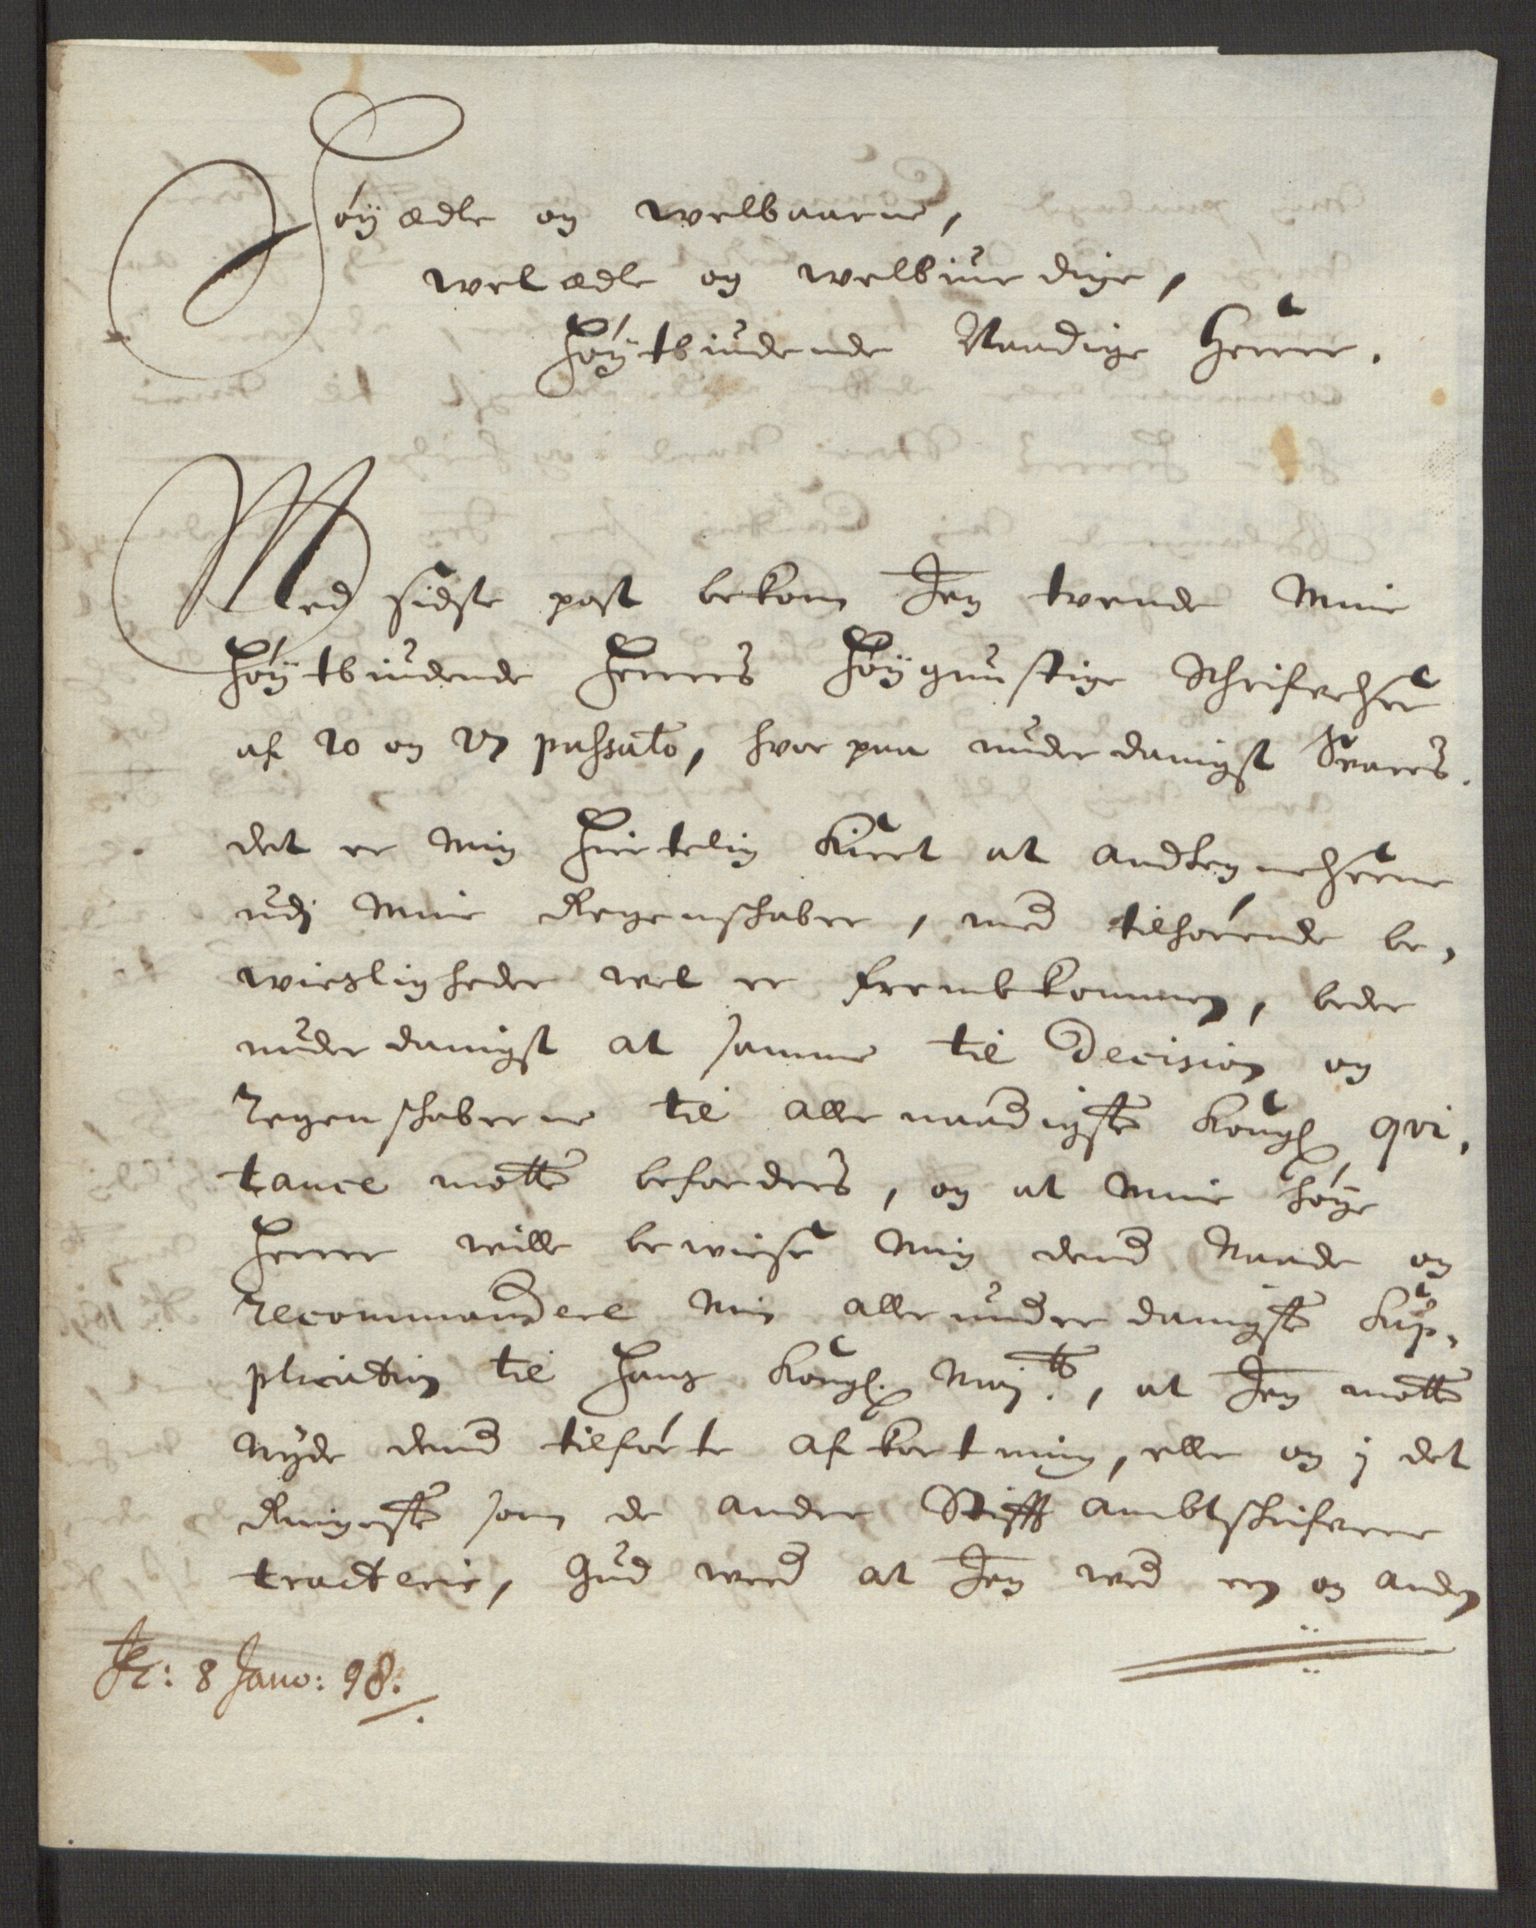 Høÿædle og welbaarne,
welædle og welbiurdige,
Høÿtbiudende Naadige Herrer.
Med sidste post bekom Jeg tvende Mine
Høÿtbiudende Herrers Høÿgunstige Schrifvelser
af 20 og 27 passato, hvor paa underdanigst Svares.
det er mig Hiertelig kiert at andtegnelserne
udj Mine Regenschaber, med tilhørende be,
wiesligheder wel er frembkommen, beder
underdanigst at samme til Decision og
regenschaberne til allernaadigste Kongl qvi,
tance motte befordres, og at Mine høÿe
Herrer wille bewiise mig dend Naade og
recommandere Min allerunderdanigste Sup,
plication til Hans Kongl. Maj:tt, at Jeg motte
Nÿde dend tilførte afkortning, eller og j det
Ringeste som de andre Stifft ambtschrifvere
tracteris, Gud weed at Jeg wed een og anden
8 Janv: 98.